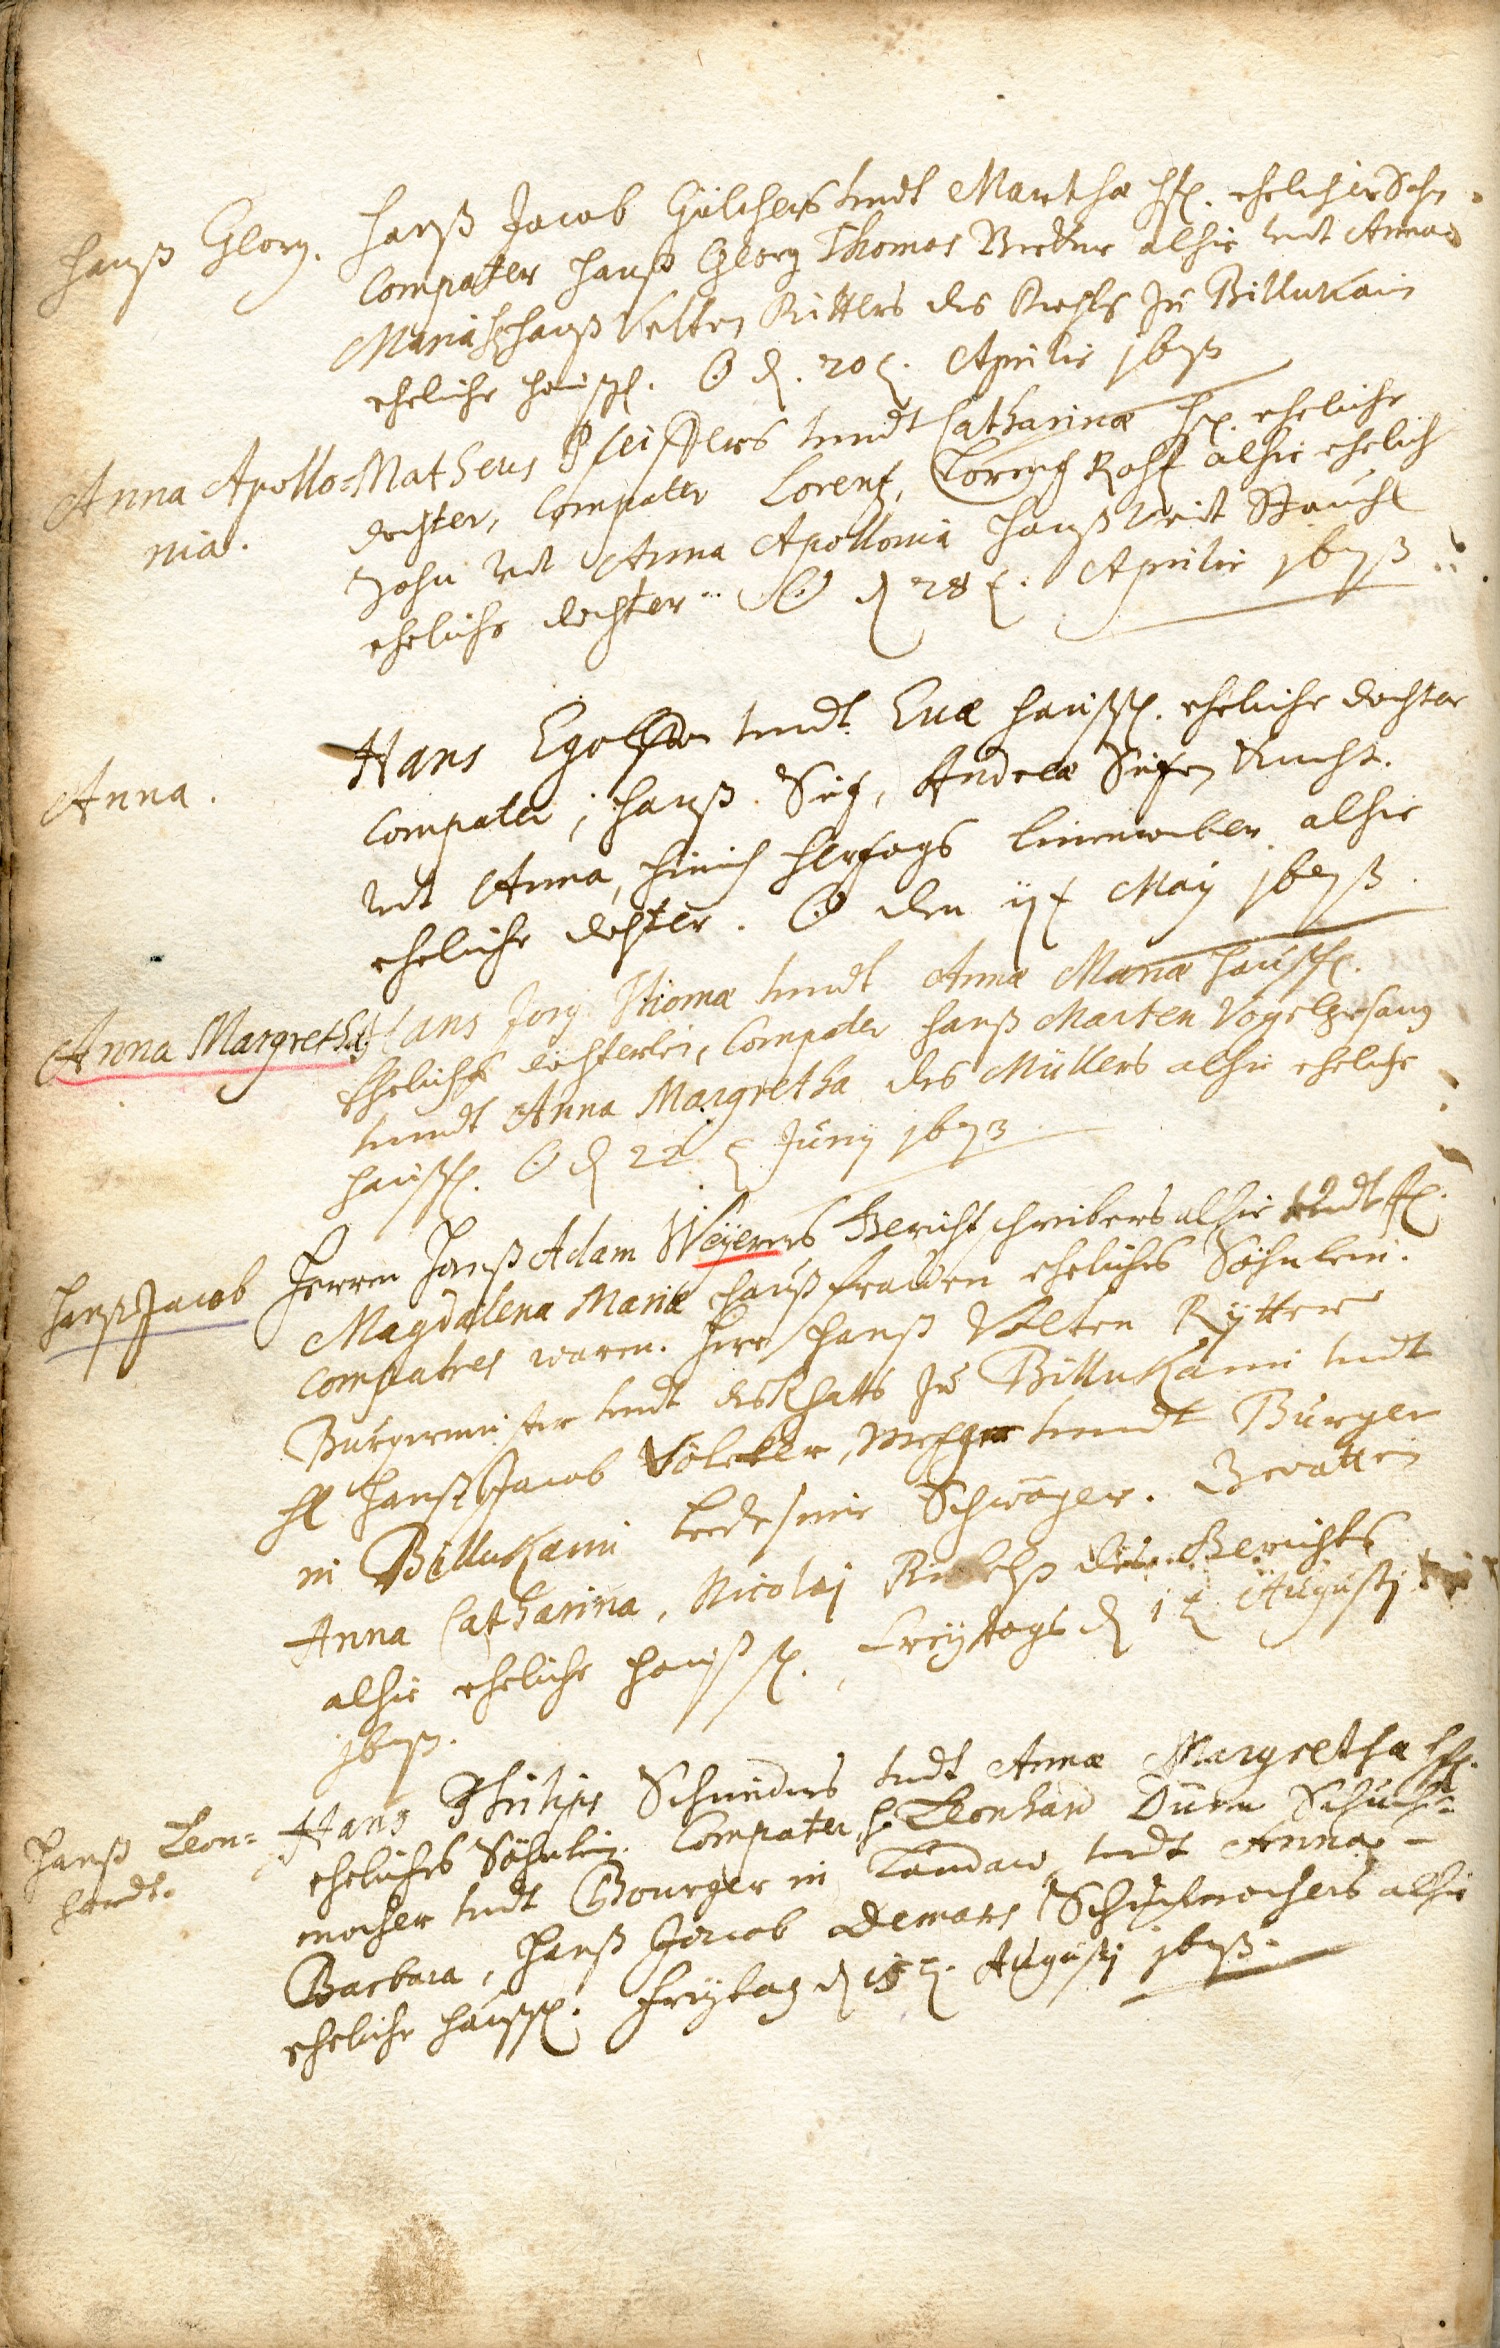 Hanß Georg.
Hanß Jacob Gülchers undt Martha hf. ehelicher Sohn
Compater Hanß Georg Thomas Becker alhie undt Anna
Maria Hanß Velten Ritters des Rahts zu Billikaim
eheliche hausf. ☉ d. 20 t. Aprilis 1673
Anna Apollo=
nia.
Matheus Pfeisters undt Catharinæ hf. eheliche
dochter, Compater Lorentz, Lorentz alhie ehelich
Sohn undt Anna Apollonia Hanß Veit Stauch
eheliche dochter. ☉ d 28 t. Aprilis 1673
Anna.
Hans undt Evæ hausf. eheliche dochter
Compater, Hanß Andreæ
undt Anna, Hertzogs leinenweber alhie
eheliche dochter. ☉ den May 1673.
Anna Margretha
Hans Jorg Thomæ undt Annæ Mariæ hausf.
Eheliches döchterlein, Compater Hanß Marten Vogelgesang
undt Anna Margretha des Müllers alhie eheliche
hausf. ☉ d 22 t Juny 1673
Hanß Jacob
Herren Hanß Adam Weÿerers Gerichtschreibers alhie undt
Magdalena Mariæ haußfrawen eheliches Söhnlein.
Compatres waren. Herr Hanß Velten Rÿtter
Burgermeister undt des Rhatts zu Billikaim undt
H Hanß Jacob Völcker, Metzger undt Burger
in Billikaim beede meine Schwäger. Gevatterin
Anna Catharina, Nicolaj des Gerichts
alhie eheliche haußf. Freÿtags d 1 t Augustj
1673.
Hanß Leon=
hardt.
Hans Philips Schneiders undt Annæ Margretha hf.
eheliches Söhnlein. Compater, H. Leonhard Dürr Schuch=
macher undt Bourger in Landaw undt Anna
Barbara, Hanß Jacob Demars Schuchmachers alhie
eheliche hausf. Freÿtag d 15 t. Augustj 1673.